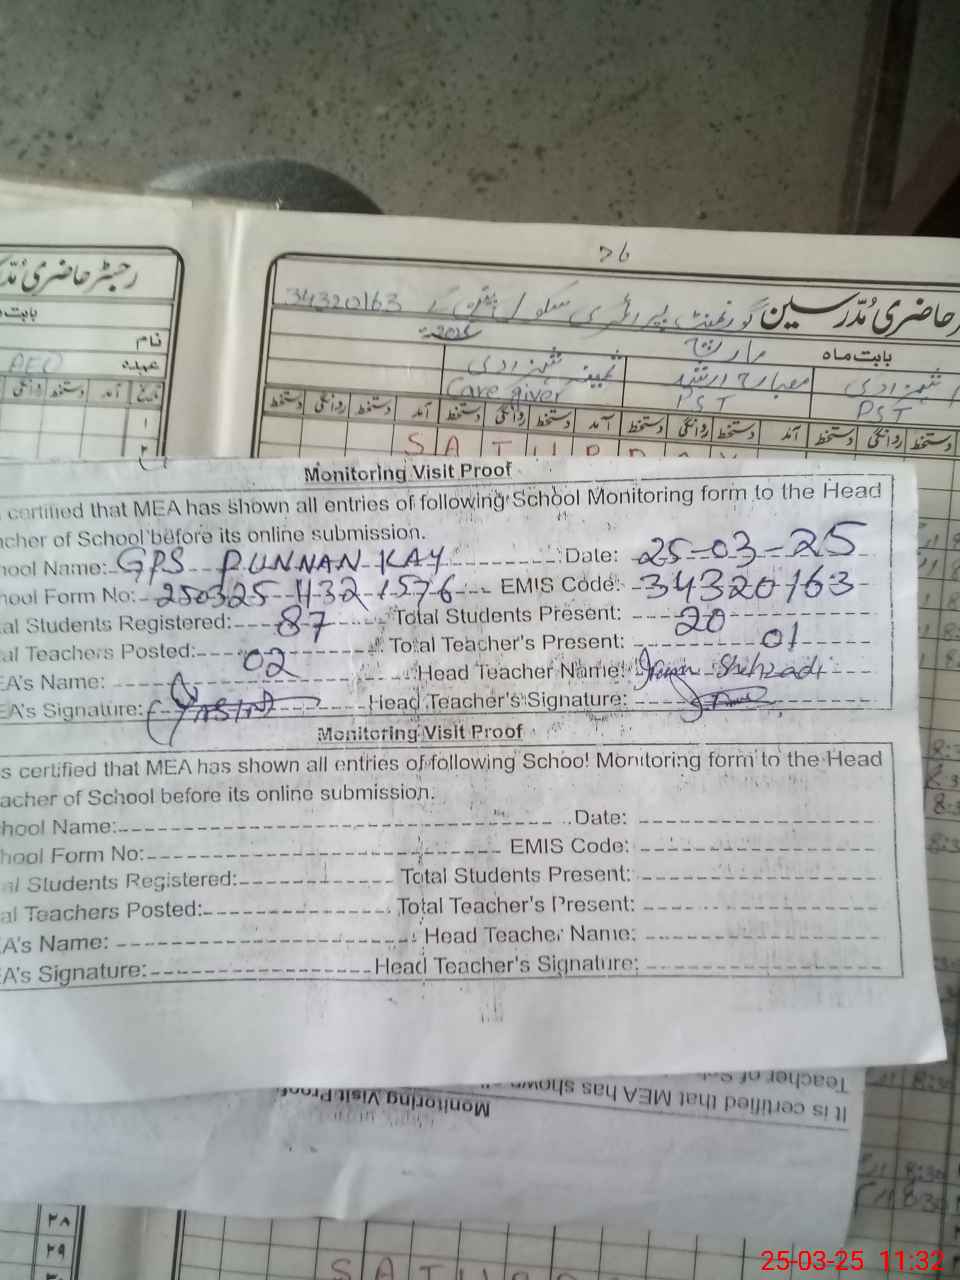 26
رجسٹر حاضری مُدّر
حاضری مُدّرسین گورنمنٹ پرائمری سکول 34320163
بابت ماہ مارچ
نام
عہدہ AEO
شہزادی
Care giver
PST
PST
تاریخ آمد دستخط روانگی
دستخط روانگی دستخط آمد دستخط روانگی دستخط آمد دستخط روانگی دستخط آمد دستخط روانگی دستخط
۱
۲
S A T U R D A Y
Monitoring Visit Proof
certified that MEA has shown all entries of following School Monitoring form to the Head
acher of School before its online submission.
hool Name: GPS PUNNAN KAY Date: 25-03-25
hool Form No: 250325-432-1576 EMIS Code: 34320163
al Students Registered: 87 Total Students Present: 20
al Teachers Posted: 02 Total Teacher's Present: 01
EA's Name: Head Teacher Name: Shehzadi
EA's Signature: YASIN Head Teacher's Signature:
Monitoring Visit Proof
s certified that MEA has shown all entries of following School Monitoring form to the Head
acher of School before its online submission.
hool Name: Date:
hool Form No: EMIS Code:
al Students Registered: Total Students Present:
al Teachers Posted: Total Teacher's Present:
A's Name: Head Teacher Name:
A's Signature: Head Teacher's Signature:
Teacher of S
It is certified that MEA has shown all
Monitoring Visit Proof
8:30
8:30
۲۸
۲۹
S A T U R
25-03-25 11:32